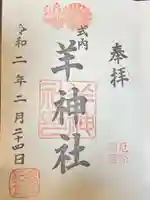 奉拝
式内
羊神社
令和二年二月二十四日